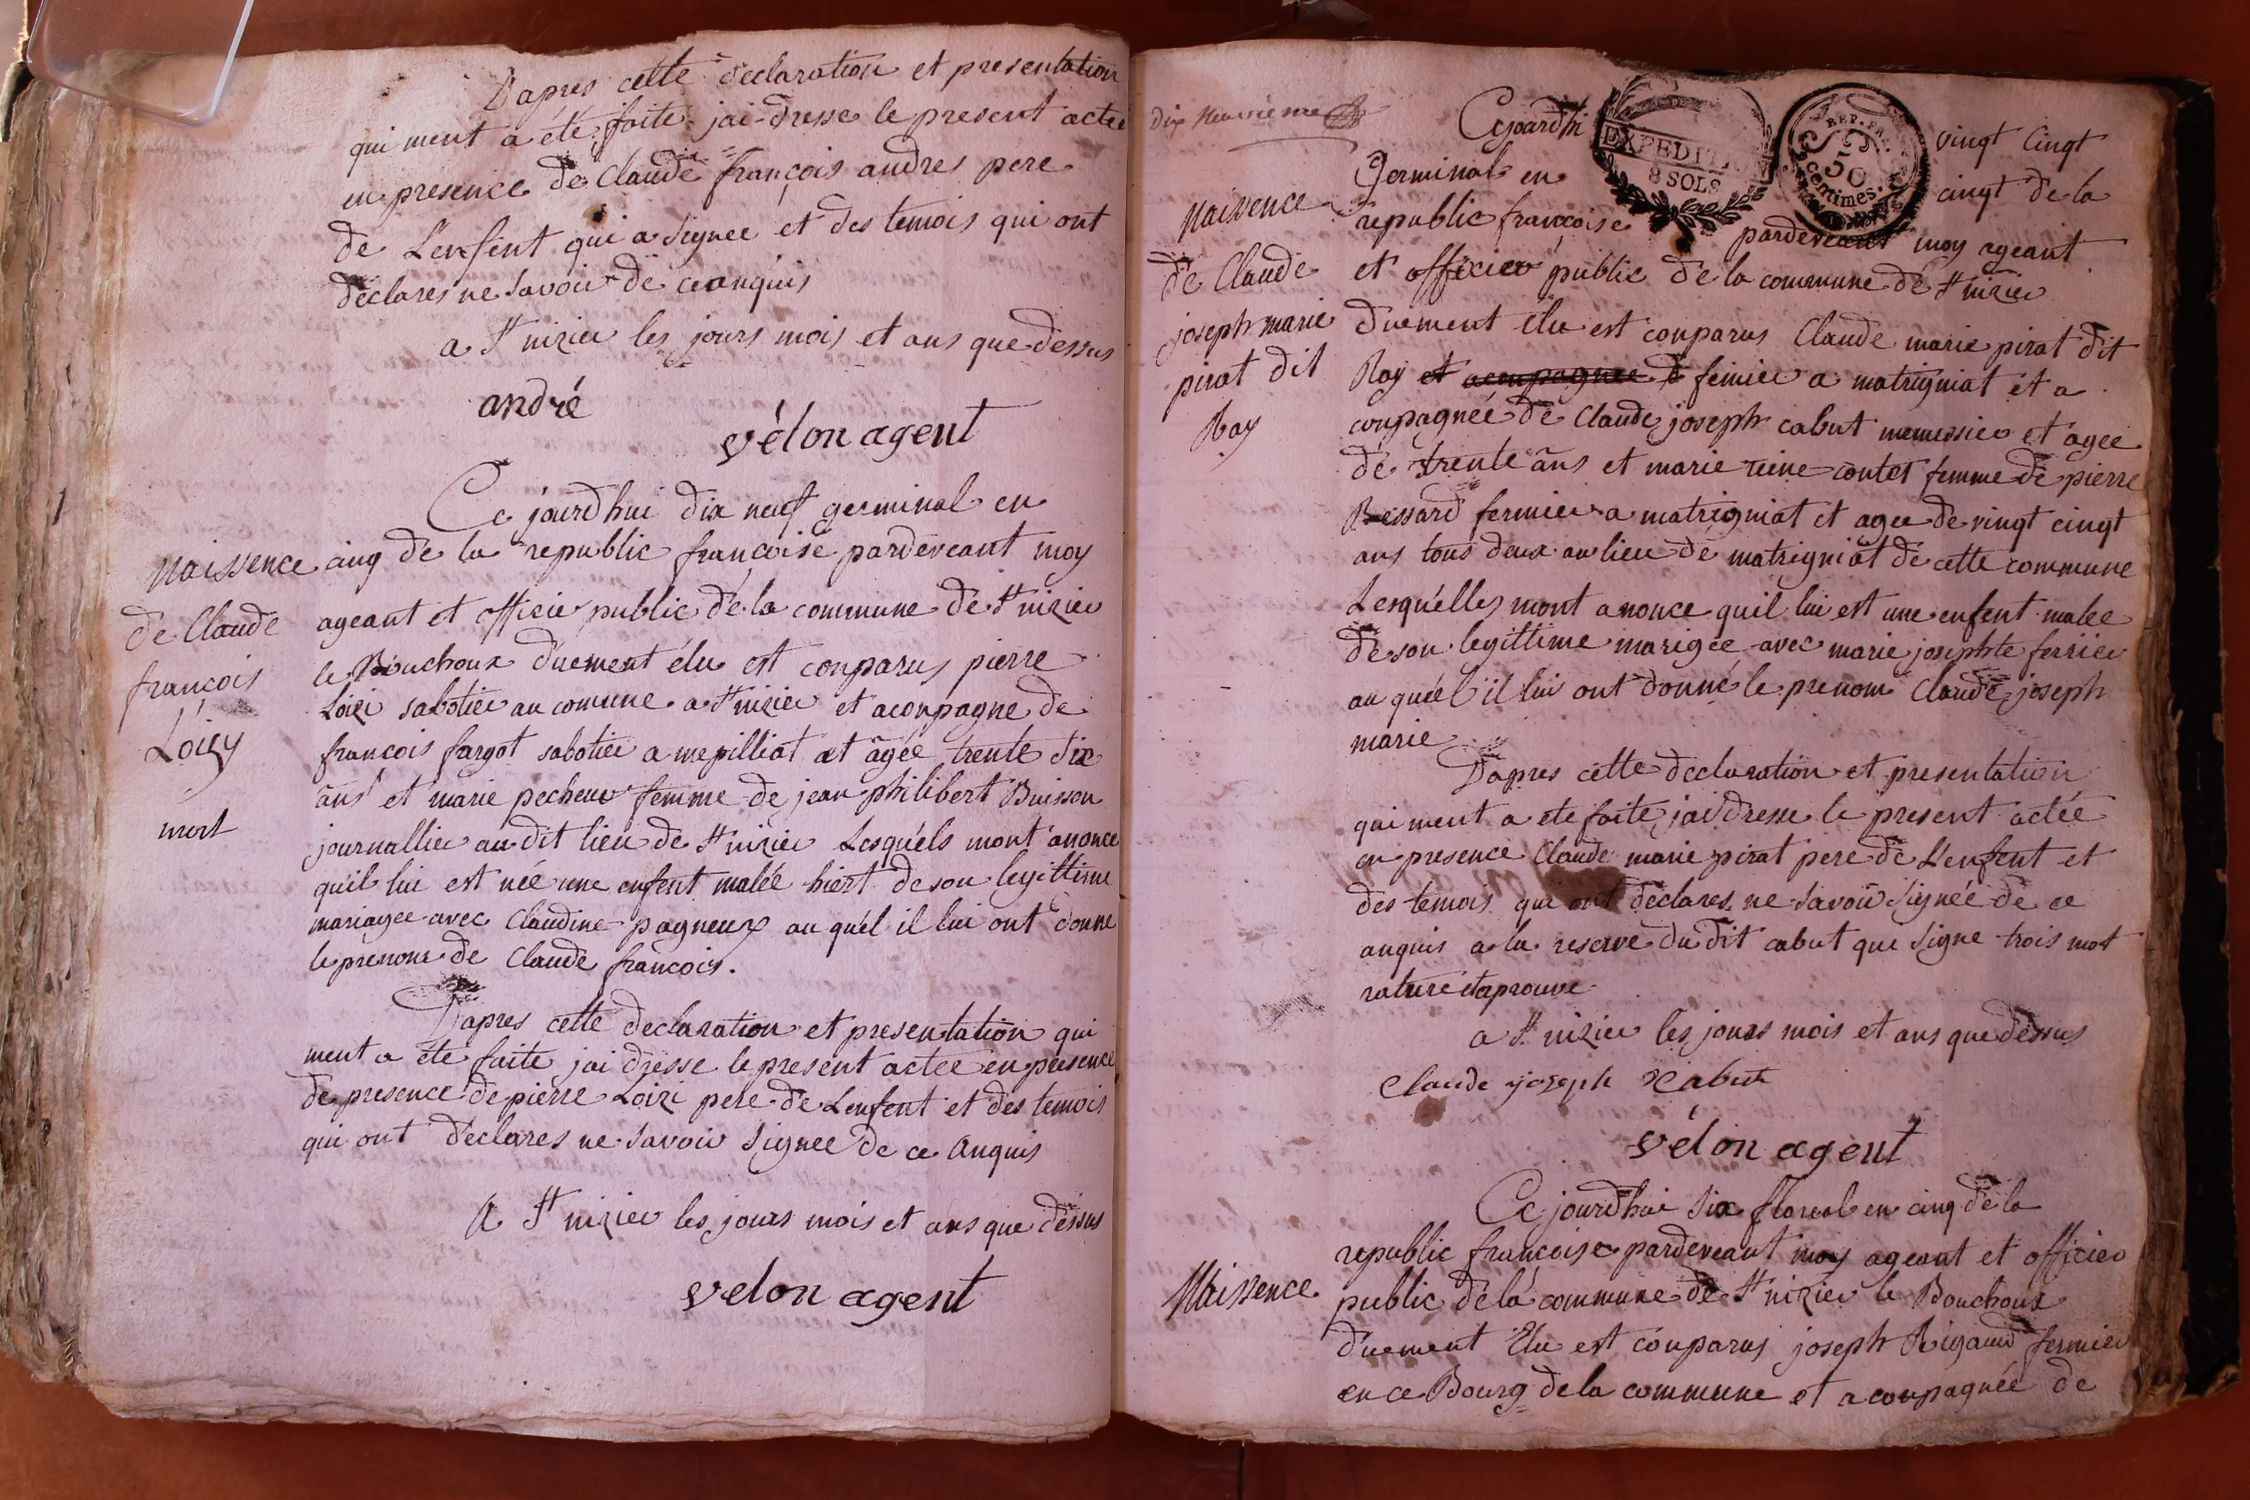 D'apres cette declaration et presentation
qui ment a été faite jai dresse le present actee
en presence de Claude françois andres pere
de Lenfent qui a signee et des temois qui ont
declares ne savoir de ce anquis
a St nizier les jours mois et ans que dessus
andré
vélon agent
Ce jourdhui dix neuf germinal en
Naissence
cinq de la republic francoise pardeveant moy
de Claude
ageant et officier public de la commune de St nizier
françois
le Bouchoux duement élu est conparus pierre
Loizy
Loizi sabotier au comune a St nizier et aconpagne de
francois fargot sabotier a mepilliat et agée trente six
mort
ans et marie pecheur femme de jean philibert Buisson
journallier au dit lieu de St nizier Lesquels mont anonce
quil lui est née une enfent malée hiert de son legittime
mariagee avec Claudine pagneux au quel il lui ont donne
le prenom de Claude francois.
D'apres cette declaration et presentation qui
ment a éte faite jai dresse le present actee en presence
de presence de pierre Loizi pere de Lenfent et des temois
qui ont declares ne savoir signee de ce anquis
A St nizier les jours mois et ans que dessus
velon agent
dix neuvieme
Cejourdhi vingt cingt
EXPEDIT
8 SOLS
REP. FRA.
50
centimes.
Germinal en cingt de la
Naissence
republic françoise pardeveant moy ageant
de Claude
et officier public de la commune de St nizier
joseph marie
duement élu est conparus Claude marie pirat dit
pirat dit
Roy et aconpagnee d femier a matrigniat et a
Roy
conpagnée de Claude joseph cabut et agee
de trente ans et marie reine contet femme de pierre
Bessard fermier a matrigniat et agee de vingt cingt
ans tous deux au lieu de matrigniat de cette commune
Lesquelles mont anonce quil lui est une enfent malee
de son legittime marigee avec marie josephte ferrier
au quéel il lui ont donné le prenom Claude joseph
marie
D'apres cette declaration et presentation
qui ment a ete faite jai dresse le present actée
en presence Claude marie pirat pere de L'enfent et
des temois qui ont declares ne savoir signée de ce
anquis a la reserve du dit cabut que signe trois mot
raturé et aprouve
a St nizier les jours mois et ans que dessus
Claude joseph Cabut
vélon agent
Ce jourdhui six floreal en cinq de la
republic francoise pardeveant moy ageant et officier
Naissence
public de la commune de St nizier le Bouchoux
duement Elu est conparus joseph Rigaud fermier
en ce Bourg de la commune et aconpagnée de